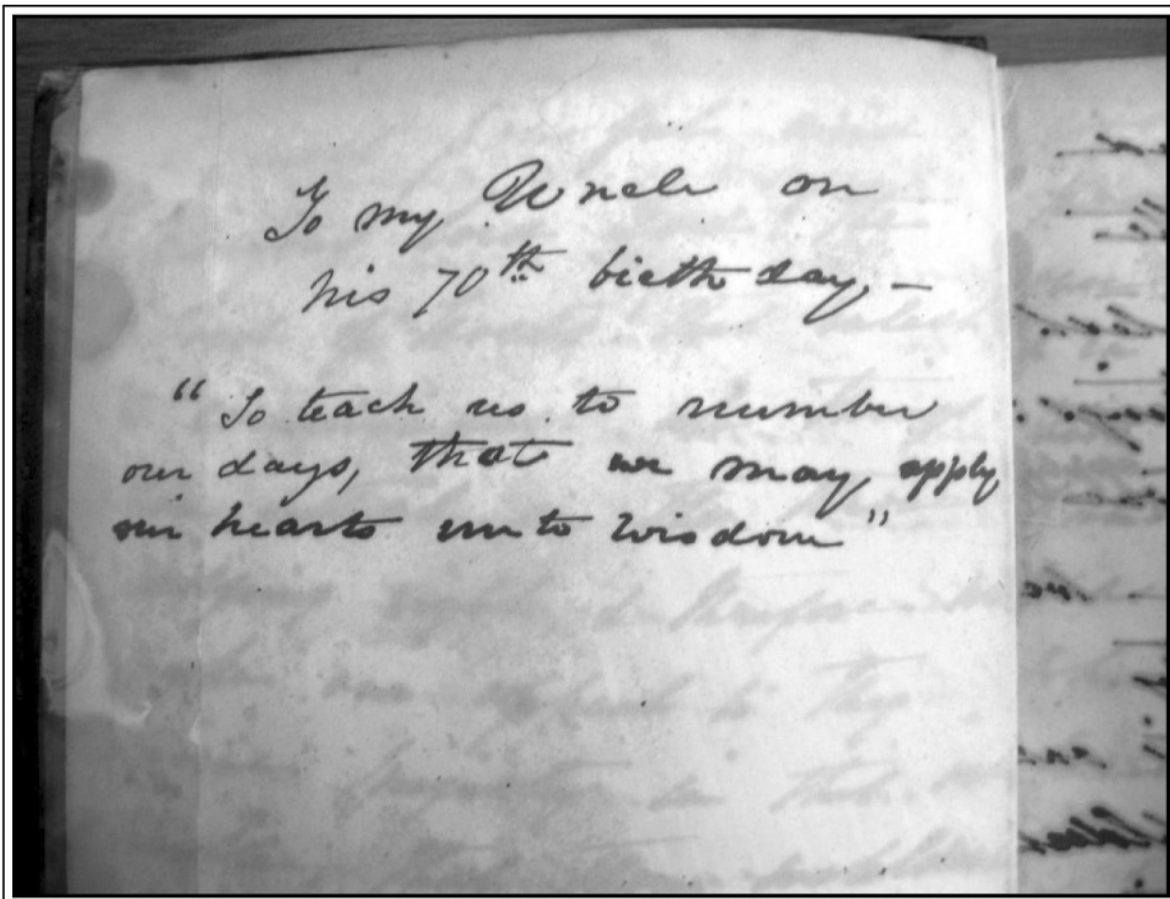 To my Uncle on
his 70th birthday,—
“So teach us to number
our days, that we may apply
our hearts unto wisdom”